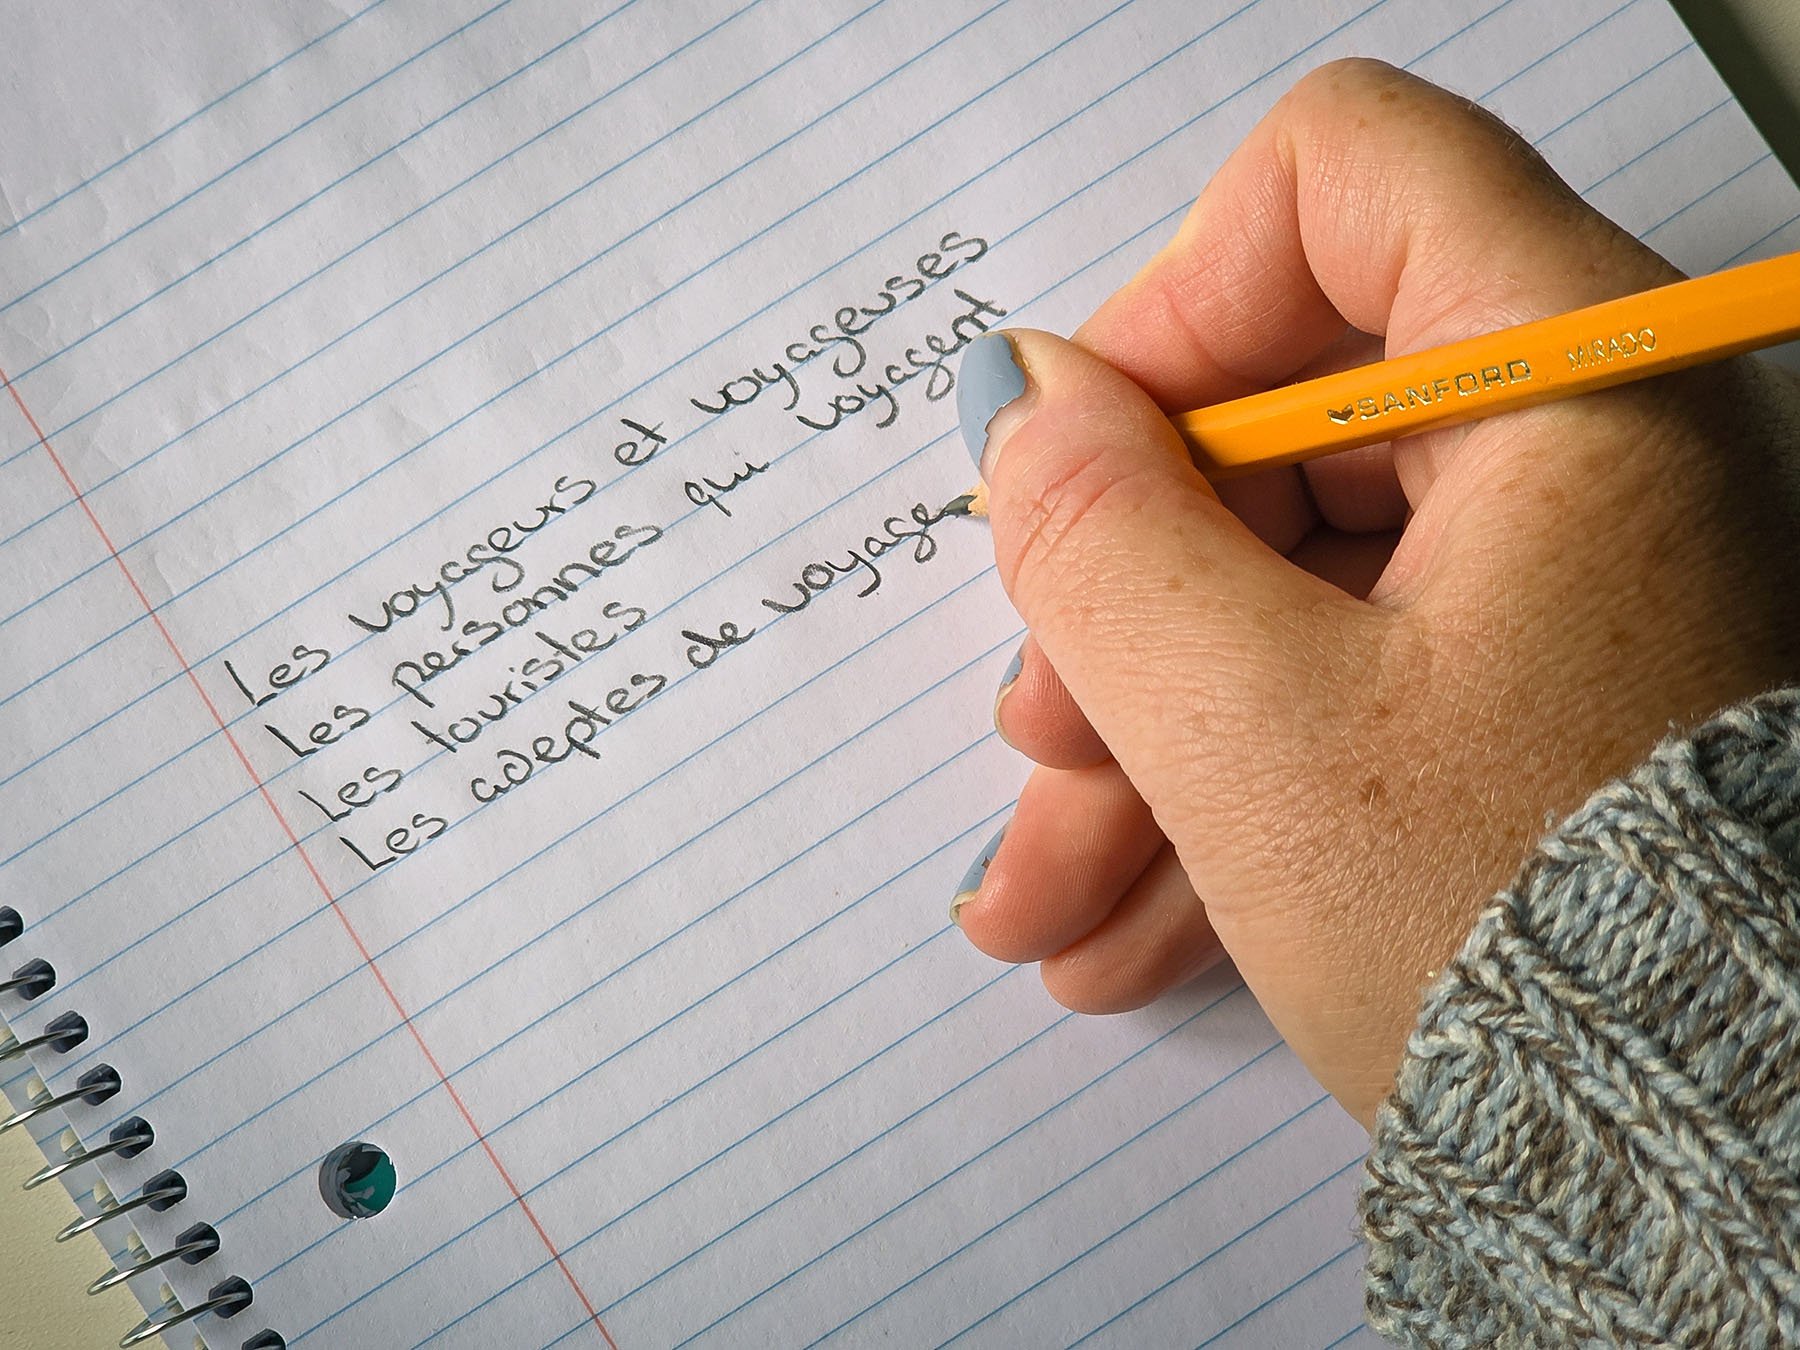 Les voyageurs et voyageuses
Les personnes qui voyagent
Les touristes
Les adeptes de voyage
SANFORD MIRADO